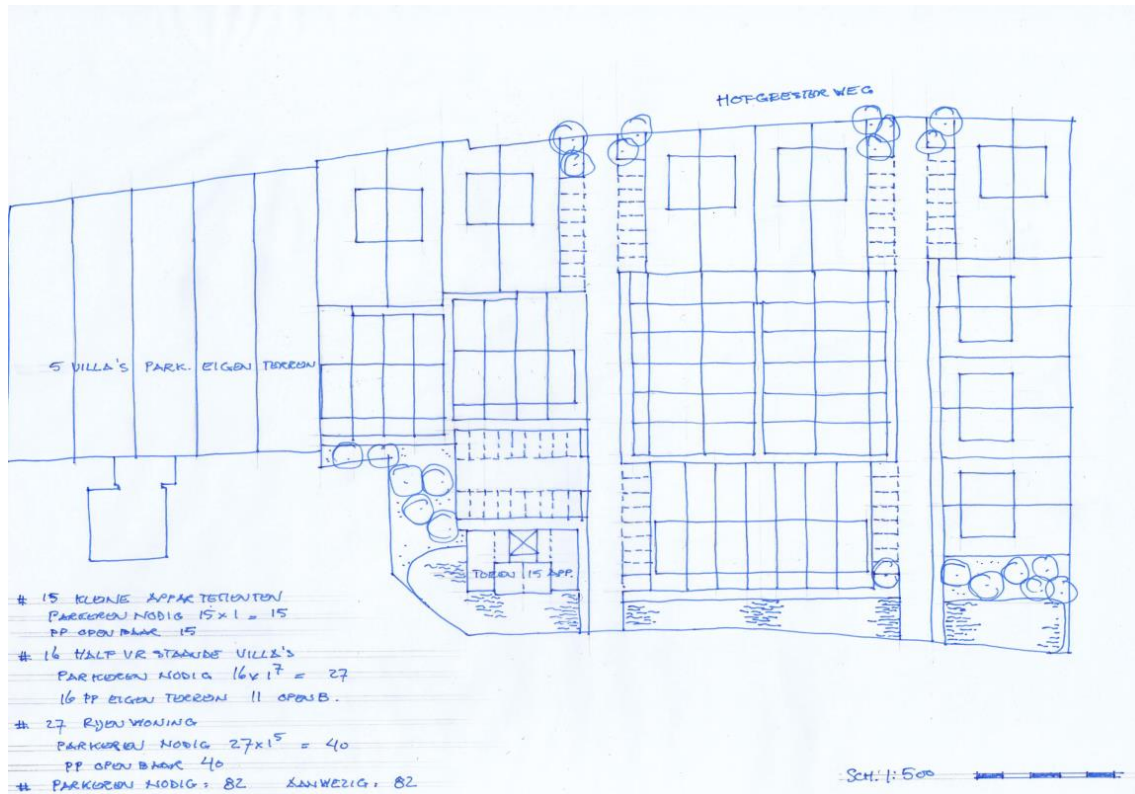 HOFGEESTER WEG
5 VILLA'S PARK. EIGEN TERREIN
TOREN 15 APP.
# 15 KLEINE APPARTEMENTEN
PARKEREN NODIG 15 x 1 = 15
PP OPENBAAR 15
# 16 HALF VR STAANDE VILLA'S
PARKEREN NODIG 16 x 1⁷ = 27
16 PP EIGEN TERREIN 11 OPENB.
# 27 RIJENWONING
PARKEREN NODIG 27x1⁵ = 40
PP OPENBAAR 40
# PARKEREN NODIG: 82 AANWEZIG: 82
SCH. 1:500